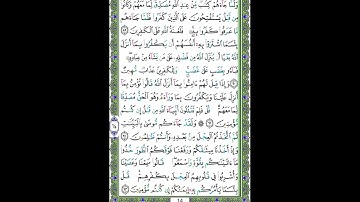 وَلَمَّا جَآءَهُمْ كِتَٰبٌ مِّنْ عِندِ ٱللَّهِ مُصَدِّقٌ لِّمَا مَعَهُمْ وَكَانُوا۟
مِن قَبْلُ يَسْتَفْتِحُونَ عَلَى ٱلَّذِينَ كَفَرُوا۟ فَلَمَّا جَآءَهُم
مَّا عَرَفُوا۟ كَفَرُوا۟ بِهِۦ فَلَعْنَةُ ٱللَّهِ عَلَى ٱلْكَٰفِرِينَ ٨٩
بِئْسَمَا ٱشْتَرَوْا۟ بِهِۦٓ أَنفُسَهُمْ أَن يَكْفُرُوا۟ بِمَآ أَنزَلَ
ٱللَّهُ بَغْيًا أَن يُنَزِّلَ ٱللَّهُ مِن فَضْلِهِۦ عَلَىٰ مَن يَشَآءُ مِنْ عِبَادِهِۦ
فَبَآءُو بِغَضَبٍ عَلَىٰ غَضَبٍ وَلِلْكَٰفِرِينَ عَذَابٌ مُّهِينٌ ٩٠
وَإِذَا قِيلَ لَهُمْ ءَامِنُوا۟ بِمَآ أَنزَلَ ٱللَّهُ قَالُوا۟ نُؤْمِنُ بِمَآ
أُنزِلَ عَلَيْنَا وَيَكْفُرُونَ بِمَا وَرَآءَهُۥ وَهُوَ ٱلْحَقُّ مُصَدِّقًا
لِّمَا مَعَهُمْ قُلْ فَلِمَ تَقْتُلُونَ أَنۢبِيَآءَ ٱللَّهِ مِن قَبْلُ إِن كُنتُم
مُّؤْمِنِينَ ٩١ ۞ وَلَقَدْ جَآءَكُم مُّوسَىٰ بِٱلْبَيِّنَٰتِ
ثُمَّ ٱتَّخَذْتُمُ ٱلْعِجْلَ مِنۢ بَعْدِهِۦ وَأَنتُمْ ظَٰلِمُونَ ٩٢
وَإِذْ أَخَذْنَا مِيثَٰقَكُمْ وَرَفَعْنَا فَوْقَكُمُ ٱلطُّورَ خُذُوا۟
مَآ ءَاتَيْنَٰكُم بِقُوَّةٍ وَٱسْمَعُوا۟ قَالُوا۟ سَمِعْنَا وَعَصَيْنَا
وَأُشْرِبُوا۟ فِى قُلُوبِهِمُ ٱلْعِجْلَ بِكُفْرِهِمْ قُلْ
بِئْسَمَا يَأْمُرُكُم بِهِۦٓ إِيمَٰنُكُمْ إِن كُنتُم مُّؤْمِنِينَ ٩٣
14